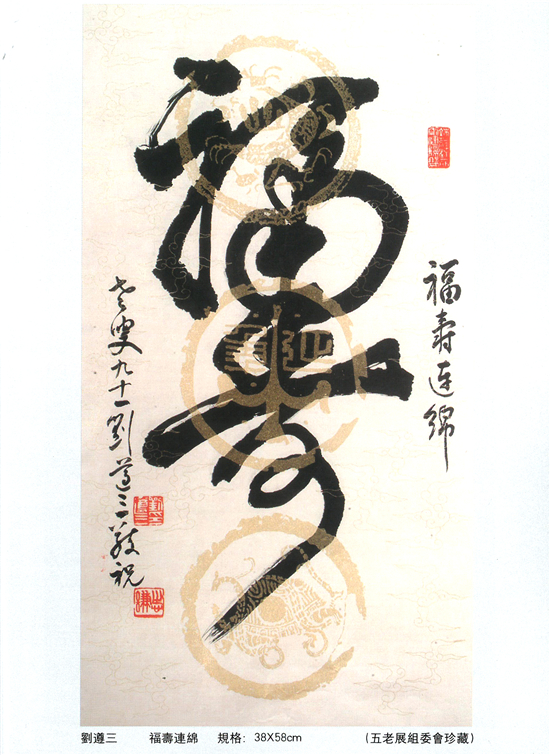 福壽
福寿連綿
老叟九十一劉遵三敬祝
劉遵三 福壽連綿 規格: 38X58cm (五老展組委會珍藏)